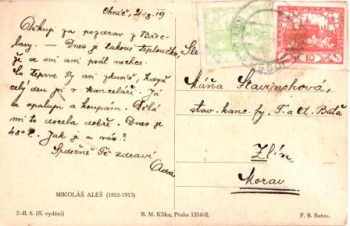 Ohnič, 21/8 19
Děkuji za pozdrav z Břec-
lavy. — Dnes je takové teploučko,
že se mi ani psát nechce.
celý den je v kanceláři. Já
se opaluji a koupám. Dělá
mi to docela dobře. Dnes je
40° C. Jak je u vás?
Srdečně Tě zdraví
Slečna
Máňa Slavinohová,
stav. kanc. fy. T. a A. Baťa
Zlín
Morav
MIKOLÁŠ ALEŠ (1852-1913)
2.-H. 6. (II. vydání)
B. M. Klika, Praha 1314-II.
F. B. Batov.